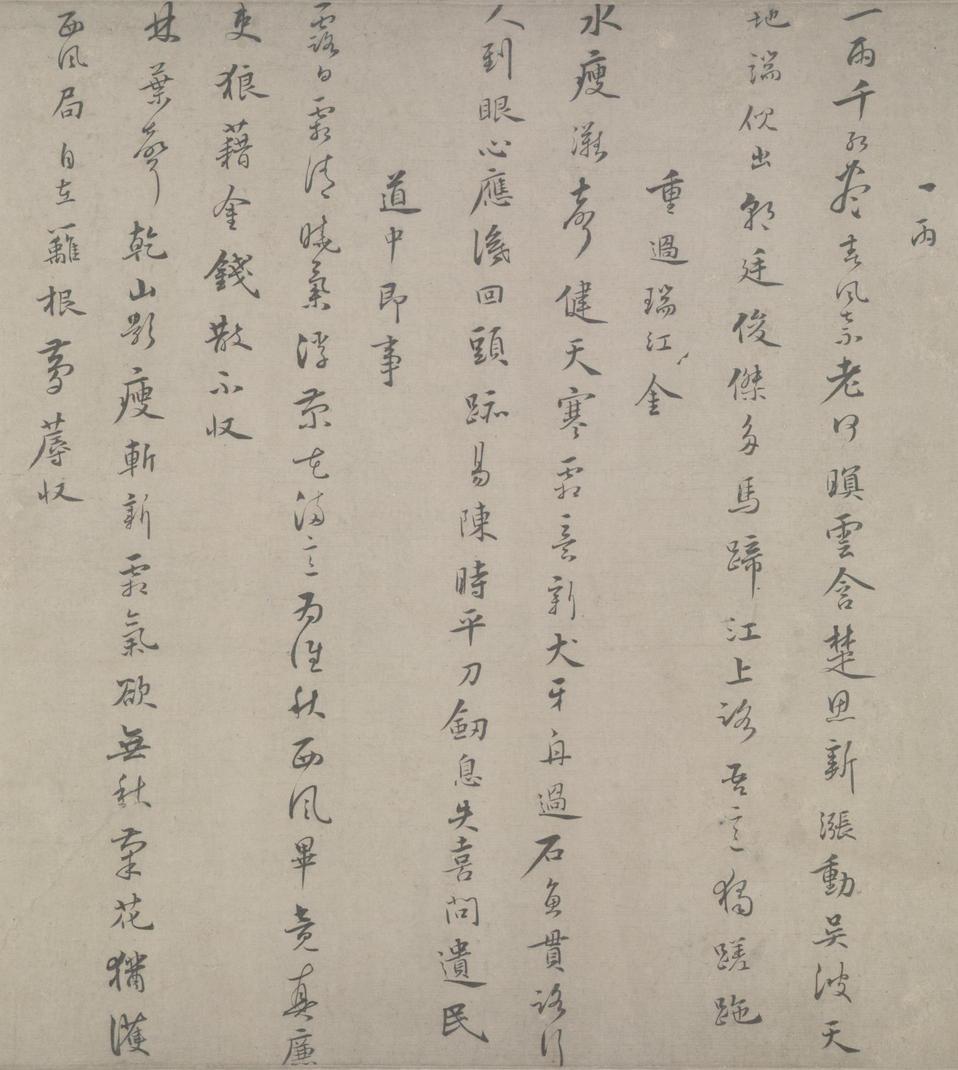 一雨
一雨千紅盡春風奈老何暝雲含楚思新漲動吳波天
地端倪出朝廷俊傑多馬蹄江上路吾意獨蹉跎
重過瑞江金
水瘦灘聲健天寒霜意新犬牙舟過石魚貫路行
人到眼心應回頭跡易陳時平刀劒息失喜問遺民
道中即事
露白霜清曉氣浮菊花滿意為誰秋西風畢竟真廉
吏狼藉金錢散不収
林葉聲乾山影瘦斬新霜氣欲無秋菊花猶護
西風局自在籬根夢蓐収